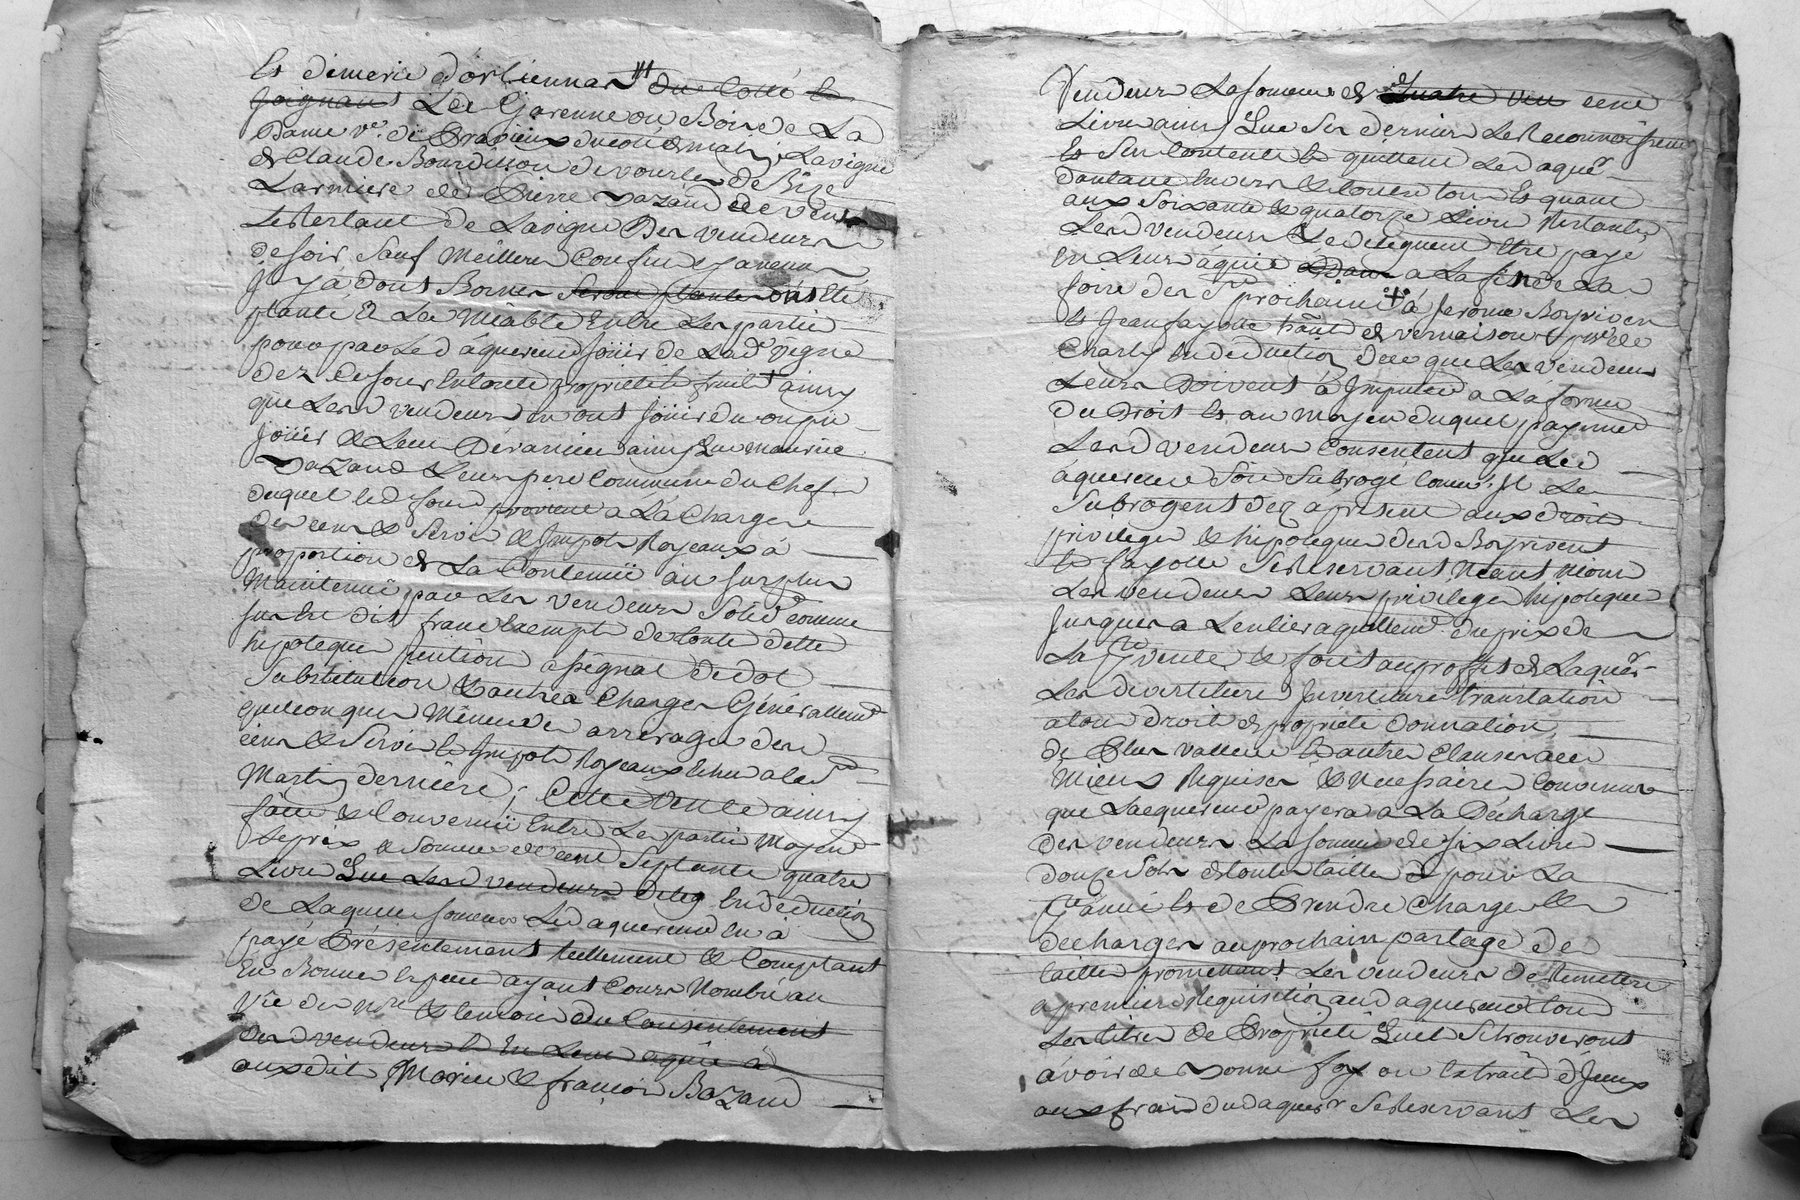 Et dimerie d'orlienna du Cotté le
joignant La Garenne ou Bois de La
Dame ve. de du coté de matin La vigne
de Claude Bourdisson de vourles de Bize
Larmiere de Pierre Bazand de vent
Le Restant de La vigne Des vendeurs
de soir Sauf Meilleurs Confins yavenir
plantè à La Miable Entre Les partie
pour par Led áquereur Joüir de Lad. vigne
dez Ce jour En toute proprieté et fruits ainsy
que Lesd vendeurs en ont Joüir du ou pü
Joüir & Leur Devancier ainsy que maurice
Bazand Leur pere Commun du Chef
duquel led fond provient a La Charge
des cens & Servis & Impots Royeaux á
proportion de La Contenüe au surplus
Maintenüe par Les vendeurs Solid. comme
sus Est Dit franc Exempt de toute dette
hipoteque pention assignat de dot
Substitution & autres Charges Généralleme.
quelconques Même de arrerages des
cens & Servis & Impots Royeaux Echu a la st
Martin derniere ; Cette Vente ainsy
faite & Convenüe Entre Les partie Moyen.
Le prix & Somme de cent Septante quatre
Livre Que Lesd vendeurs deleg En déduction
de Laquelle somme Led aquereur En á
payé Présentement Reellement & Comptant
En Bonne Espece ayant Cours Nombré au
Vûe du Nre & temoin du Consentement
desd vendeurs & En Leur aquit à
auxdit Morice & françois Bazand
Vendeurs La somme de Quatre ven cent
Livre ainsy Que Ses derniers Le Reconnoissent
Et S'en Contente Et quittent Led aquer.
d'autant Envers & Contre tous Et quant
aux Soixante & quatorze Livre Restante
Lesd vendeurs Le deleguent Etre payé
En Leurs aquit a La fête de La
foire des prochaine á Jerome Boyriven
Et Jean fayolle hañt de vernaison & pisse de
Charly En déduction de ce que Les vendeurs
Leurs Doivent á Imputer a La forme
du Droit Et au Moyen duquel payement
Lesd vendeurs Consentent que Led
áquereur Soit Subrogé Comme Il Le
Subrogent dez a présent aux droits
privileges & hipoteques desd Boyrivent
Et fayolle Se Reservant Néant Moins
Les vendeurs Leurs privilege hipoteque
Jusques a L'entier aquittem. du prix de
La pnte vente, & font au proffit de L'aquer.
Les divertiture Investiture translation
a tous droit de propriété donnation
de Plus vallue Et autre Clauses á ce
Mieux Requises & Necessaires Convenus
que L'acquereur payera a La Décharge
des vendeurs La somme de six Livre
douze Sols de toutes tailles & pour La
pnte année Et de Prendre Charge
décharges au prochain partage de
tailles promettant Les vendeurs de Remettre
a premiere Requisition aud aquereur tous
Les titres de Propriété Qu'el Se trouveront
ávoir de Bonne foy ou Extrait d'Jceux
aux frais dud aquer. Se Reservant Les